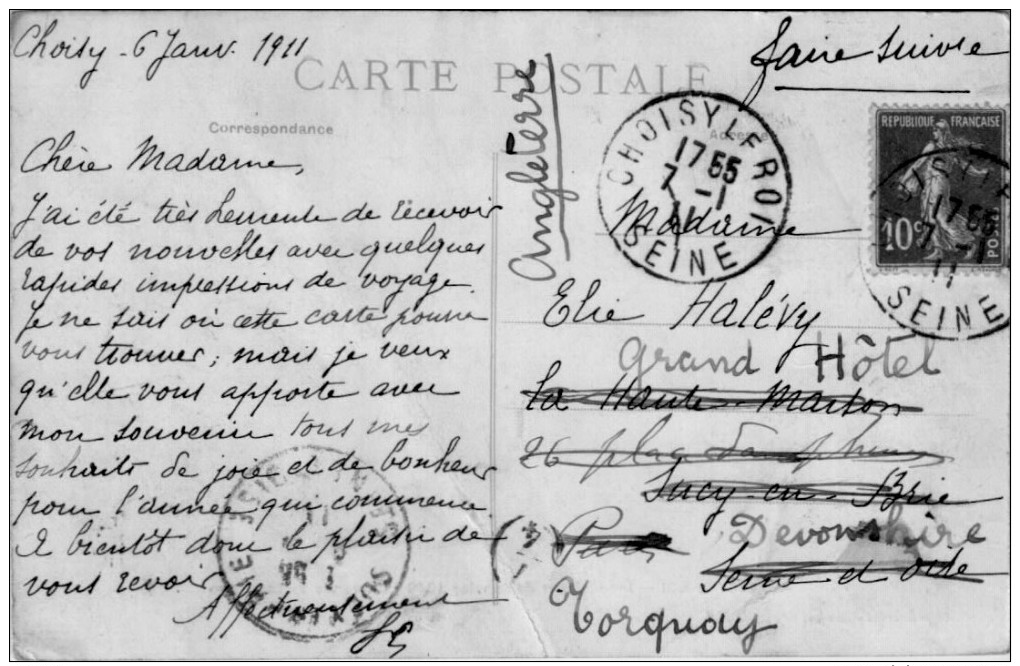 Choisy - 6 Janv. 1911
faire suivre
CARTE POSTALE
Correspondance
Adresse
Angleterre
Chère Madame,
J'ai été très heureuse de recevoir
de vos nouvelles avec quelques
rapides impressions de voyage.
Je ne sais où cette carte pourra
vous trouver, mais je veux
qu'elle vous apporte avec
mon souvenir tous mes
souhaits de joie et de bonheur
pour l'année qui commence
A bientôt donc le plaisir de
vous revoir
Affectueusement
CHOISY LE ROI
17 55
7 -1
11
SEINE
REPUBLIQUE FRANÇAISE
10c
POSTES
17 55
7 -1
11
SEINE
Madame
Elie Halévy
Grand Hôtel
la Haute Maison
26 place Dauphine
Sucy-en-Brie
Paris
Devonshire
Seine et Oise
Torquay